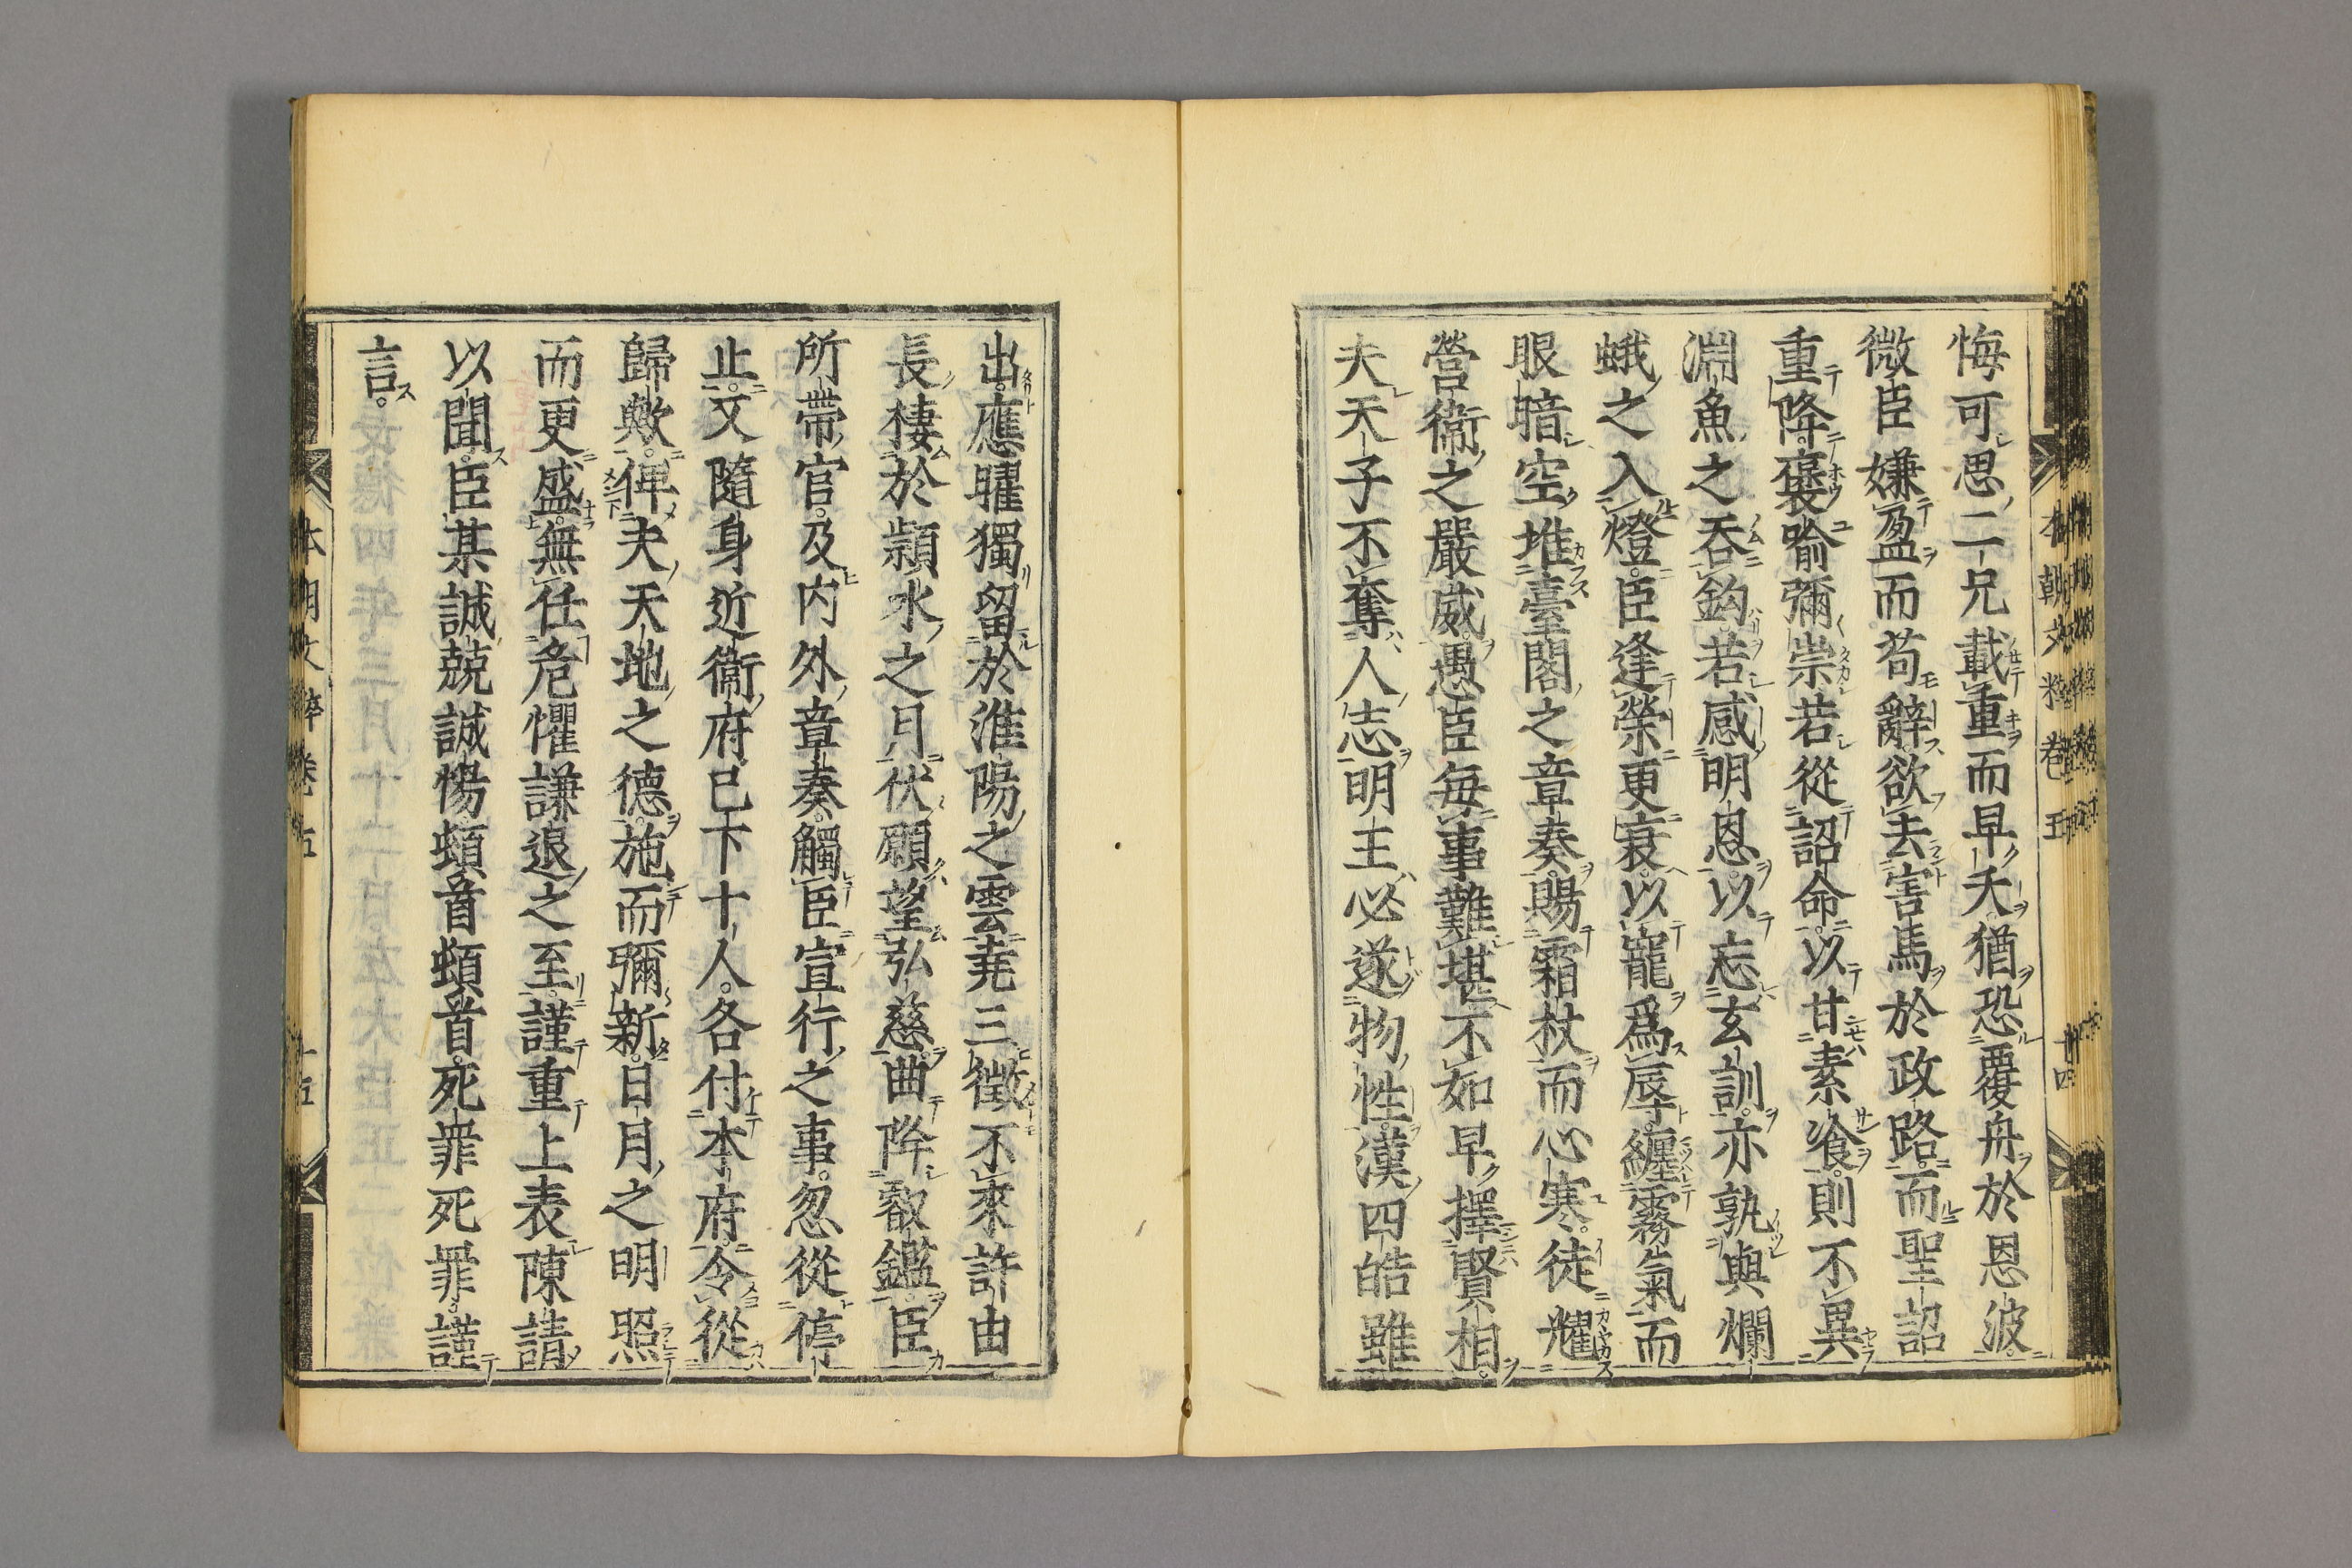 悔可思二兄載重而早夭猶恐覆舟於恩波
微臣嫌盈而苟辭欲去害馬於政路而聖詔
重降褒喩彌崇若從詔命以甘素飡則不異
淵魚之呑鈎若感明恩以忘玄訓亦孰與爛
蛾之入燈臣逢榮更衰以寵爲辱纏霧氣而
眼暗空堆臺閣之章奏賜霜杖而心寒徒燿
營衞之嚴威愚臣毎事難堪不如早擇賢相
夫天子不奪人志明王必遂物性漢四皓雖
出應曜獨留於淮陽之雲堯三徵不來許由
長棲於頴水之月伏願望弘慈曲降叡鑑臣
所帶官及内外章奏觸臣宣行之事忽從停
止文隨身近衞府已下十人各付本府令從
歸歟俾夫天地之德施而彌新日月之明照
而更盛無任危懼謙退之至謹重上表陳請
以聞臣某誠兢誠惕頓首頓首死罪死罪謹
言
本朝文粹卷五
廿四
本朝文粹卷五